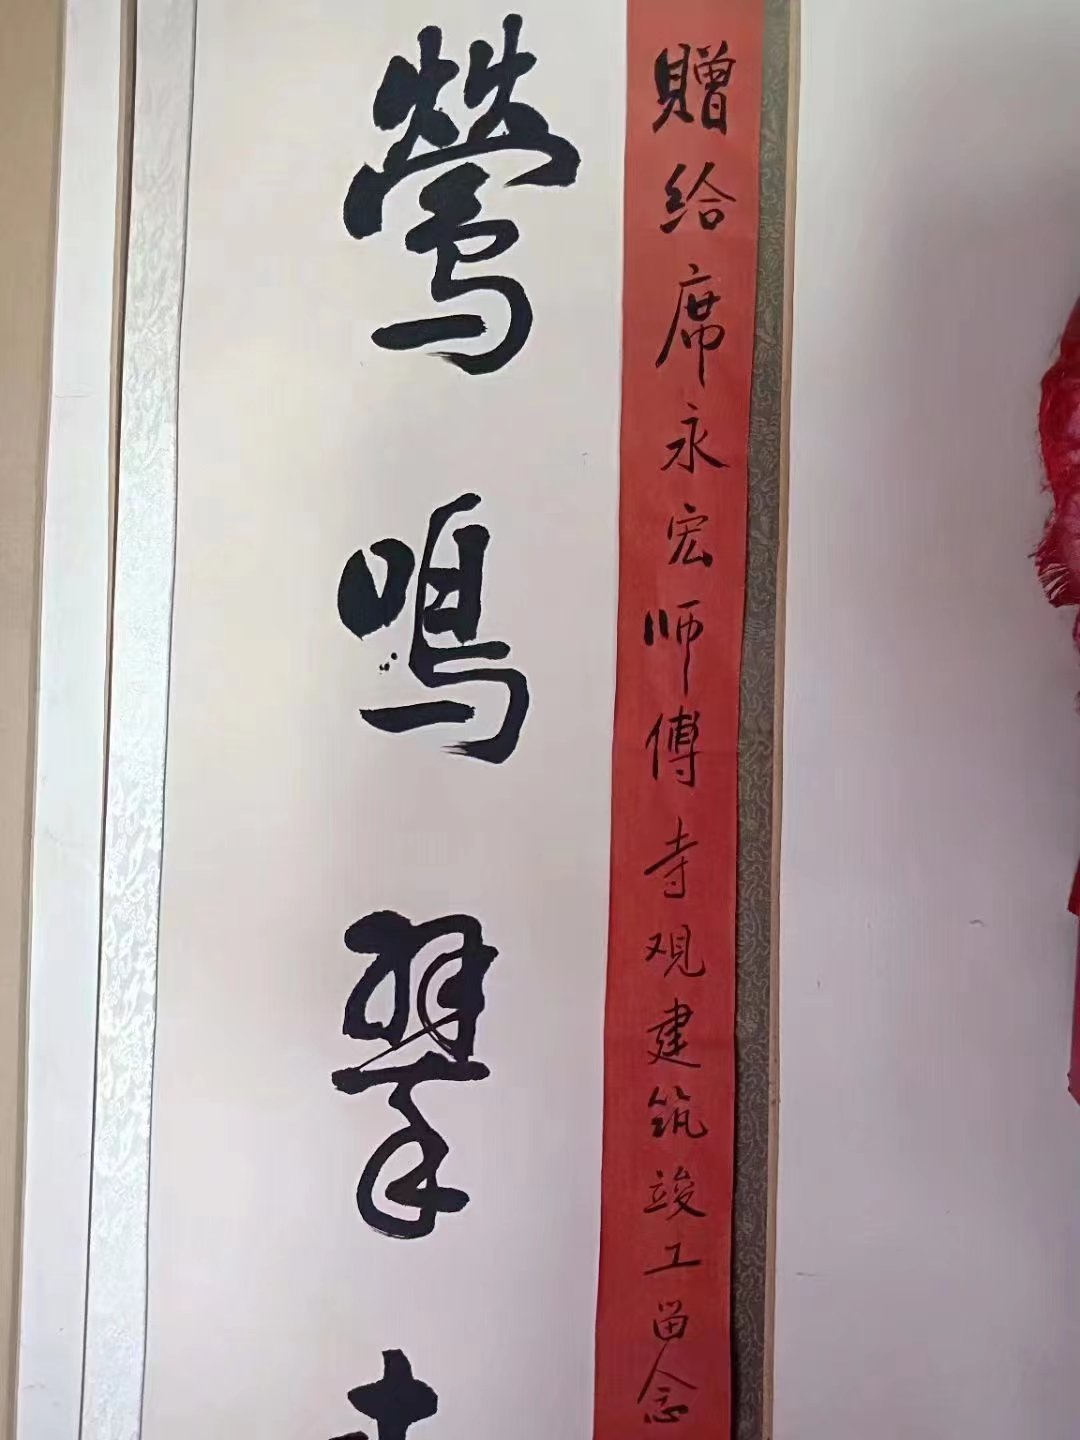 贈给席永宏师傅寺观建筑竣工留念
鶯鳴翠